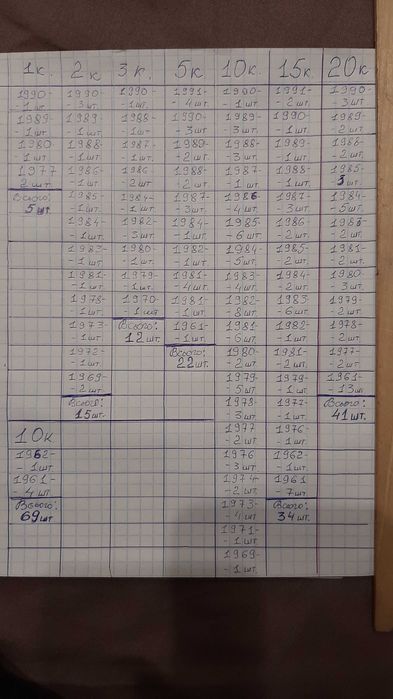 1к.
1990-
- 1 шт.
1989-
- 1 шт.
1980
- 1 шт
1977
2 шт.
Всього:
5 шт
2 к
1990-
- 3 шт.
1989-
- 1 шт.
1988-
- 1 шт.
1986-
- 1 шт.
1985-
- 1 шт.
1984-
- 1 шт.
1983-
- 1 шт.
1981-
- 1 шт.
1978-
- 1 шт.
1973-
- 1 шт.
1972-
- 1 шт.
1969-
- 2 шт.
Всього:
15 шт.
3 к.
1990-
- 1 шт.
1988-
- 1 шт-
1987-
- 1 шт.
1986-
- 2 шт.
1984-
- 1 шт.
1982-
- 3 шт.
1980-
- 1 шт.
1979-
- 1 шт.
1970-
- 1 шт
Всього:
12 шт.
5к
1991-
- 4 шт
1990-
- 3 шт
1989-
- 2 шт
1988-
- 2 шт
1987-
- 3 шт.
1984-
- 1 шт.
1982-
- 1 шт.
1981-
- 4 шт.
1981-
- 1 шт.
1961-
- 1 шт.
Всього:
22 шт.
10к.
1990-
- 1 шт.
1989-
- 3 шт.
1988-
- 3 шт.
1987-
- 1 шт
1986-
- 4 шт.
1985-
- 6 шт.
1984-
- 5 шт.
1983-
- 4 шт.
1982-
- 8 шт.
1981-
- 6 шт.
1980-
- 2 шт.
1979-
- 5 шт.
1978-
- 3 шт.
1977
- 2 шт
1976
- 3 шт
1974-
- 2 шт.
1973-
- 4 шт
1971-
- 1 шт.
1969-
- 1 шт.
15к.
1991-
- 2 шт.
1990-
- 1 шт.
1989-
- 1 шт.
1988-
- 1 шт.
1987-
- 3 шт.
1986-
- 2 шт.
1985-
- 2 шт.
1984-
- 2 шт.
1983
- 6 шт.
1982-
- 1 шт.
1981-
- 2 шт.
1979-
- 1 шт.
1977-
- 1 шт.
1976-
- 1 шт.
1962-
- 1 шт.
1961
- 7 шт
Всього:
34 шт.
20к
1990-
- 3 шт
1989-
- 2 шт.
1986-
- 2 шт.
1985-
3 шт.
1984-
- 5 шт.
1983-
- 2 шт.
1981-
- 2 шт.
1980-
- 3 шт.
1979-
- 2 шт.
1978-
- 2 шт.
1977-
- 2 шт.
1961-
- 13 шт.
Всього:
41 шт.
10к
1962-
- 1 шт.
1961-
- 4 шт
Всього:
69 шт